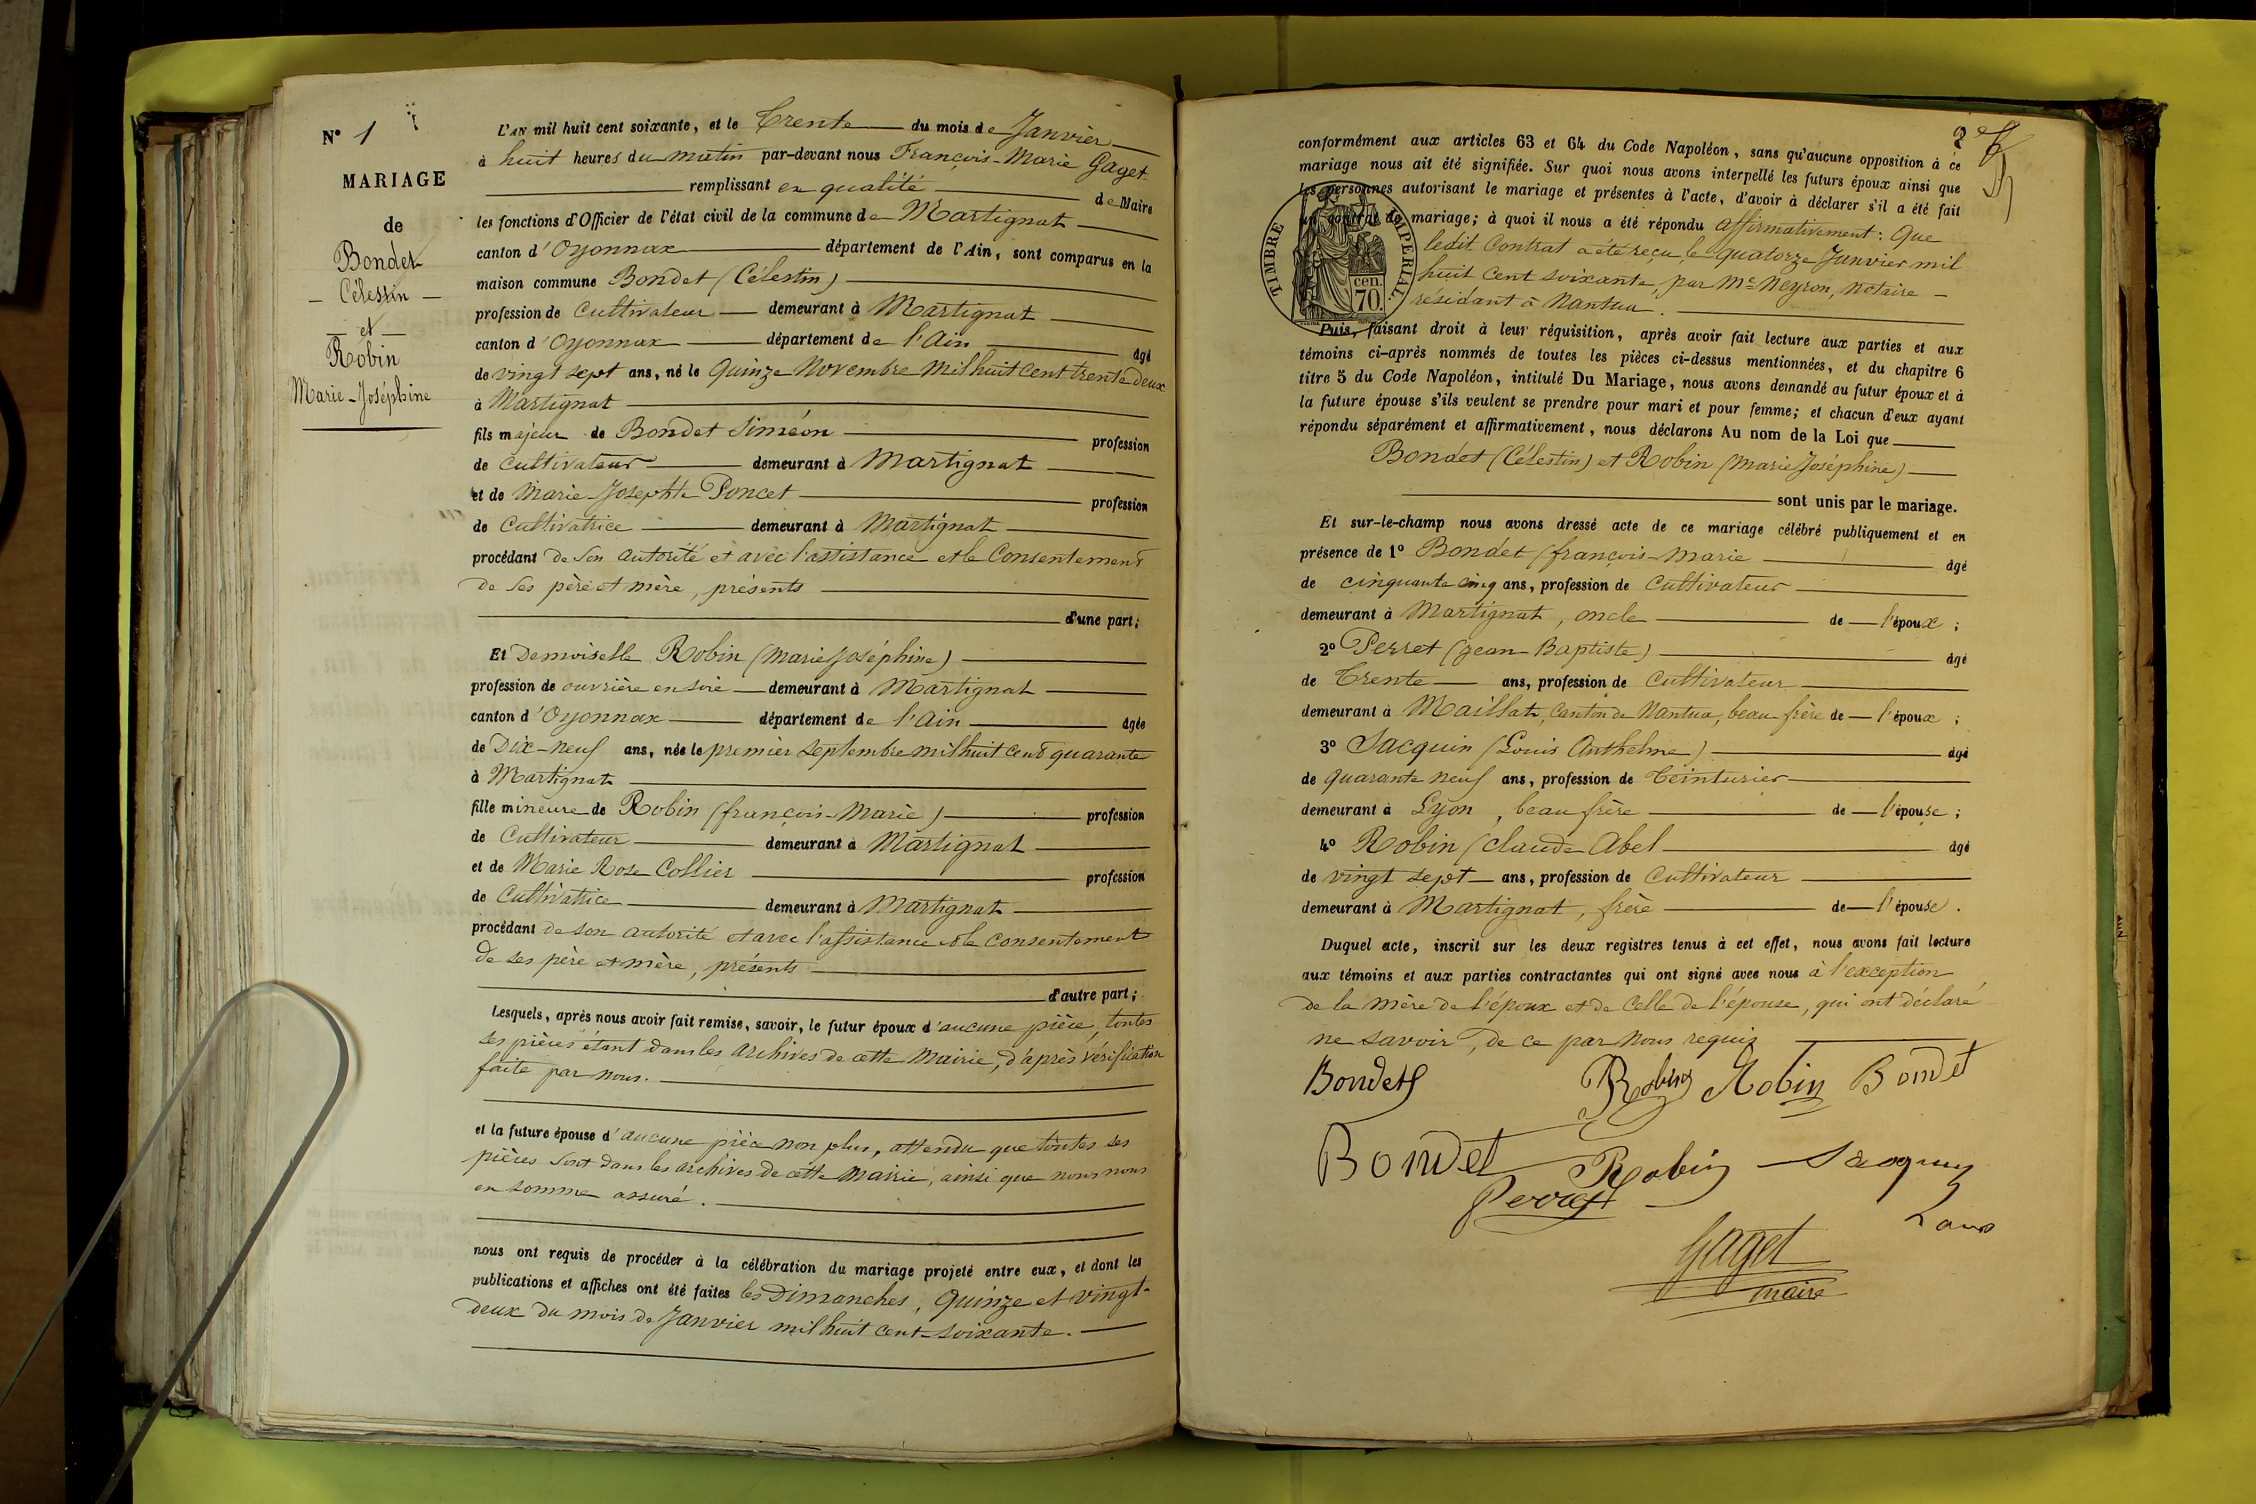 N° 1
MARIAGE
de
Bondet
Célestin
et
Robin
Marie-Joséphine
L'AN mil huit cent soixante, et le Trente du mois de Janvier
à huit heures du matin par-devant nous François-Marie Gaget
remplissant en qualité de Maire
les fonctions d'Officier de l'état civil de la commune de Martignat
canton d'Oyonnax département de l'Ain, sont comparus en la
maison commune Bondet (Célestin)
profession de Cultivateur demeurant à Martignat
canton d'Oyonnax département de l'Ain âgé
de vingt sept ans, né le Quinze Novembre Mil huit Cent trente Deux
à Martignat
fils majeur de Bondet Siméon profession
de Cultivateur demeurant à Martignat
et de Marie Josephte Poncet profession
de Cultivatrice demeurant à Martignat
procédant de son autorité et avec l'assistance et le Consentement
de ses père et mère, présents
d'une part;
Et Demoiselle Robin (Marie Joséphine)
profession de ouvrière en soie demeurant à Martignat
canton d'Oyonnax département de l'Ain âgée
de Dix-neuf ans, née le premier Septembre mil huit Cent quarante
à Martignat
fille mineure de Robin (françois-Marie) profession
de Cultivateur demeurant à Martignat
et de Marie Rose Collier profession
de Cultivatrice demeurant à Martignat
procédant de son autorité et avec l'assistance et le consentement
de ses père et mère, présents
d'autre part;
Lesquels, après nous avoir fait remise, savoir, le futur époux d'aucune pièce, toutes
ses pièces étant dans les archives de cette Mairie, d'après vérification
faite par nous.
et la future épouse d'aucune pièce non plus, attendu que toutes ses
pièces sont dans les archives de cette Mairie, ainsi que nous nous
en sommes assuré.
nous ont requis de procéder à la célébration du mariage projeté entre eux, et dont les
publications et affiches ont été faites les Dimanches, Quinze et vingt-
deux du mois de Janvier mil huit cent soixante.
2
conformément aux articles 63 et 64 du Code Napoléon, sans qu'aucune opposition à ce
mariage nous ait été signifiée. Sur quoi nous avons interpellé les futurs époux ainsi que
les personnes autorisant le mariage et présentes à l'acte, d'avoir à déclarer s'il a été fait
un contrat de mariage; à quoi il nous a été répondu affirmativement: Que
ledit Contrat a été reçu, le quatorze Janvier mil
huit Cent soixante, par Me Neyron, Notaire
résidant à Nantua.
TIMBRE IMPERIAL
70 cen.
Puis, faisant droit à leur réquisition, après avoir fait lecture aux parties et aux
témoins ci-après nommés de toutes les pièces ci-dessus mentionnées, et du chapitre 6
titre 5 du Code Napoléon, intitulé Du Mariage, nous avons demandé au futur époux et à
la future épouse s'ils veulent se prendre pour mari et pour femme; et chacun d'eux ayant
répondu séparément et affirmativement, nous déclarons Au nom de la Loi que
Bondet (Célestin) et Robin (Marie Joséphine)
sont unis par le mariage.
Et sur-le-champ nous avons dressé acte de ce mariage célébré publiquement et en
présence de 1° Bondet (françois-Marie âgé
de cinquante cinq ans, profession de Cultivateur
demeurant à Martignat, oncle de l'époux;
2° Perret (Jean-Baptiste) âgé
de Trente ans, profession de Cultivateur
demeurant à Maillat, Canton de Nantua, beau frère de l'époux;
3° Jacquin (Louis Anthelme) âgé
de quarante neuf ans, profession de Teinturier
demeurant à Lyon, beau frère de l'épouse;
4° Robin (Claude Abel âgé
de vingt sept ans, profession de Cultivateur
demeurant à Martignat, frère de l'épouse.
Duquel acte, inscrit sur les deux registres tenus à cet effet, nous avons fait lecture
aux témoins et aux parties contractantes qui ont signé avec nous à l'exception
de la mère de l'époux et de Celle de l'épouse, qui ont déclaré
ne savoir, de ce par Nous requis
Bondet Robin Robin Bondet
Bondet Robin Jacquin
Perret
Gaget
maire